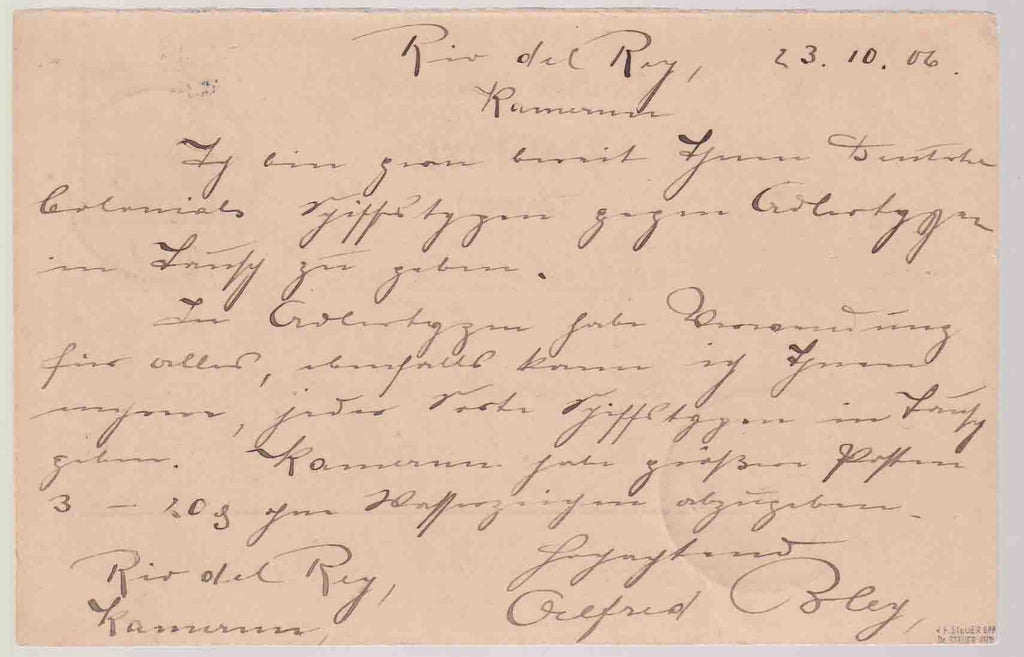 Rio del Rey, 23.10.06.
Kamerun
Ich bin gern bereit Ihnen Deutsche
Colonials Schiffstypen gegen Adlertypen
in Tausch zu geben.
In Adlertypen habe Verwendung
für alles, ebenfalls kann ich Ihnen
mehrere, jeder Sorte Schiffstypen in Tausch
geben. Kamerun habe größere Posten
3 – 20 ₰ ohne Wasserzeichen abzugeben.
Hochachtend
Rio del Rey, Alfred Boley,
Kamerun,
v. F. STEUER BPP
Dr. STEUER VÖB